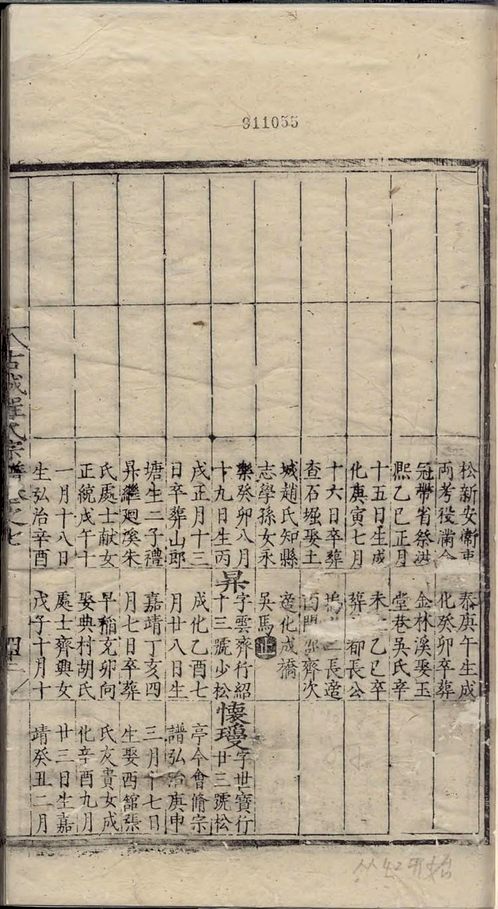 911055
松新安衛吏
兩考役滿令
冠帶省祭洪
熙乙巳正月
十五日生成
化庚寅七月
十六日卒葬
查石堀娶土
城趙氏知縣
志學孫女永
樂癸卯八月
十九日生丙
戌正月十三
日卒葬山郎
塘生二子禮
昇繼廻溪朱
氏處士猷女
正統戊午十
一月十八日
生弘治辛酉
泰庚午生成
化癸卯卒葬
金林溪娶玉
堂巷吳氏辛
未乙巳卒
葬都長公
二長適
門齊次
適化成橋
吳馬
昇字雲齊行紹
十三號少松
成化乙酉七
月廿八日生
嘉靖丁亥四
月七日卒葬
早稲充卯向
娶典村胡氏
處士齊興女
戊子十月十
懷瓊字世寶行
廿三號松
亭今會脩宗
譜弘治庚申
三月十七日
生娶西舘張
氏友貴女成
化辛酉九月
廿三日生嘉
靖癸丑二月
古城程氏宗譜卷之七